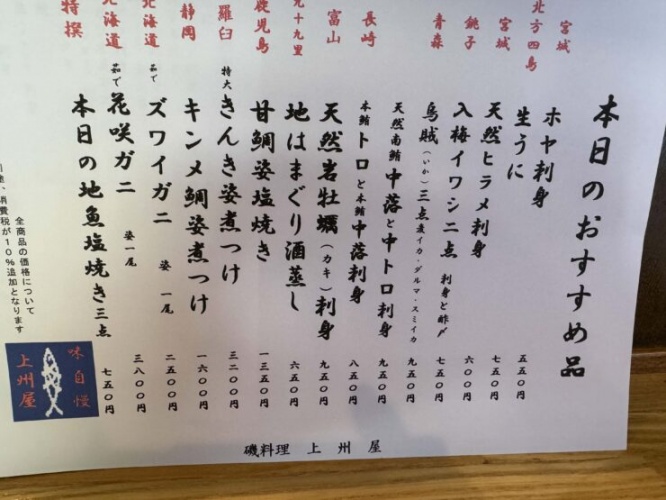 本日のおすすめ品
宮城
ホヤ刺身
五五〇円
北方四島
生うに
七五〇円
宮城
天然ヒラメ刺身
六〇〇円
銚子
入梅イワシ二点 刺身と酢〆
七五〇円
青森
烏賊(いか)三点 麦イカ・ダルマ・スミイカ
九五〇円
天然南鮪 中落と中トロ刺身
八五〇円
長崎
本鮪トロと本鮪中落刺身
九五〇円
富山
天然岩牡蠣(カキ)刺身
九五〇円
九十九里
地はまぐり酒蒸し
六五〇円
鹿児島
甘鯛姿塩焼き
一三五〇円
羅臼
特大きんき姿煮つけ
三二〇〇円
静岡
キンメ鯛姿煮つけ
一六〇〇円
北海道
茹でズワイガニ 姿 一尾
二五〇〇円
北海道
茹で花咲ガニ 姿一尾
三八〇〇円
特撰
本日の地魚塩焼き三点
七五〇円
全商品の価格について
消費税が10%追加となります
味自慢
上州屋
磯料理 上州屋